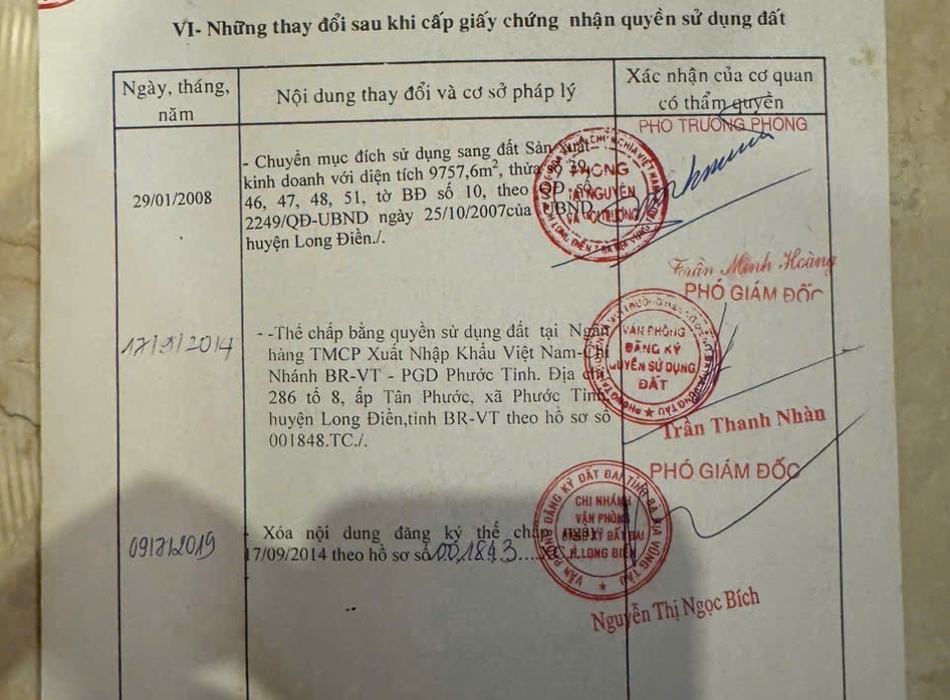 VI- Những thay đổi sau khi cấp giấy chứng nhận quyền sử dụng đất
Ngày, tháng,
năm
Nội dung thay đổi và cơ sở pháp lý
Xác nhận của cơ quan
có thẩm quyền
29/01/2008
- Chuyển mục đích sử dụng sang đất Sản xuất
kinh doanh với diện tích 9757,6m², thửa số 29,
46, 47, 48, 51, tờ BĐ số 10, theo QĐ số
2249/QĐ-UBND ngày 25/10/2007của UBND
huyện Long Điền./.
PHÓ TRƯỞNG PHÒNG
PHÒNG
TÀI NGUYÊN
VÀ MÔI TRƯỜNG
Trần Minh Hoàng
17/9/2014
- -Thế chấp bằng quyền sử dụng đất tại Ngân
hàng TMCP Xuất Nhập Khẩu Việt Nam-Chi
Nhánh BR-VT - PGD Phước Tỉnh. Địa chỉ:
286 tổ 8, ấp Tân Phước, xã Phước Tỉnh,
huyện Long Điền,tỉnh BR-VT theo hồ sơ số
001848.TC./.
PHÓ GIÁM ĐỐC
VĂN PHÒNG
ĐĂNG KÝ
QUYỀN SỬ DỤNG
ĐẤT
Trần Thanh Nhàn
09/7/2019
Xóa nội dung đăng ký thế chấp ngày
17/09/2014 theo hồ sơ số 001843....XC
PHÓ GIÁM ĐỐC
VĂN PHÒNG ĐĂNG KÝ ĐẤT ĐAI TỈNH BÀ RỊA VŨNG TÀU
CHI NHÁNH
VĂN PHÒNG
ĐĂNG KÝ ĐẤT ĐAI
H.LONG ĐIỀN
Nguyễn Thị Ngọc Bích